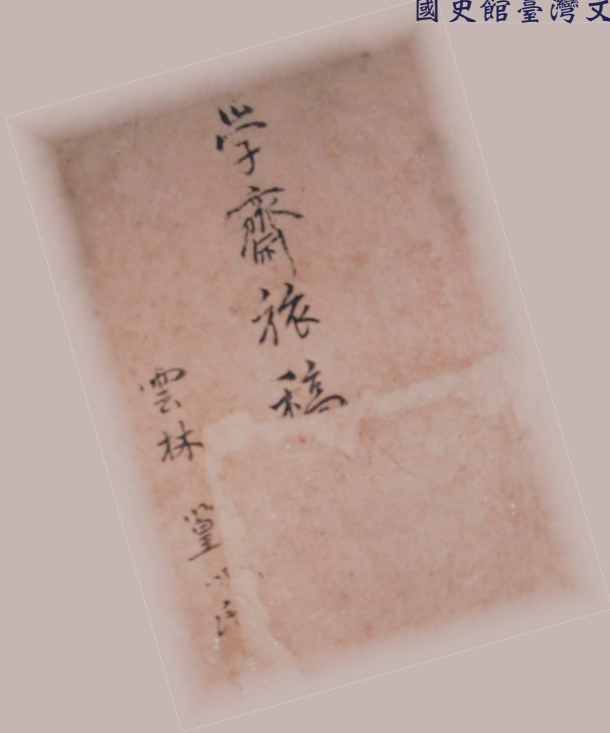 國史館臺灣文
学齋旅稿
雲林